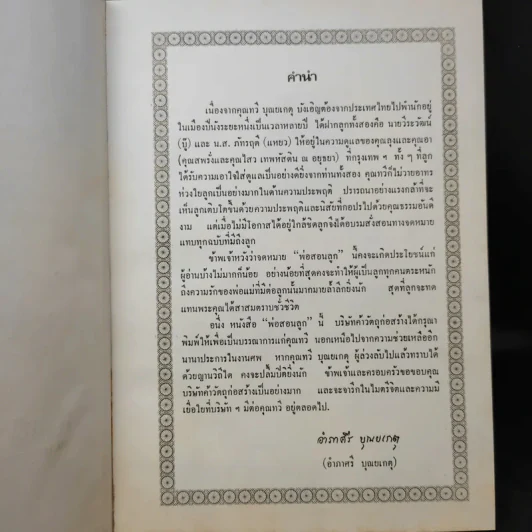 คำนำ
เนื่องจากคุณทวี บุณยเกตุ บังเอิญต้องจากประเทศไทยไปพำนักอยู่
ในเมืองปีนังระยะหนึ่งเป็นเวลาหลายปี ได้ฝากลูกทั้งสองคือ นายวีระวัฒน์
(ปู้) และ น.ส. ภัทรฤดี (แหยว) ให้อยู่ในความดูแลของคุณลุงและคุณอา
(คุณสพรั่งและคุณไสว เทพหัสดิน ณ อยุธยา) ที่กรุงเทพ ฯ ทั้ง ๆ ที่ลูก
ได้รับความเอาใจใส่ดูแลเป็นอย่างดียิ่งจากท่านทั้งสอง คุณทวีก็ไม่วายอาทร
ห่วงใยลูกเป็นอย่างมากในด้านความประพฤติ ปรารถนาอย่างแรงกล้าที่จะ
เห็นลูกเติบโตขึ้นด้วยความประพฤติและนิสัยที่กอปรไปด้วยคุณธรรมอันดี
งาม แต่เมื่อไม่มีโอกาสได้อยู่ใกล้ชิดลูกจึงได้อบรมสั่งสอนทางจดหมาย
แทบทุกฉบับที่มีถึงลูก
ข้าพเจ้าหวังว่าจดหมาย “พ่อสอนลูก” นี้คงจะเกิดประโยชน์แก่
ผู้อ่านบ้างไม่มากก็น้อย อย่างน้อยที่สุดคงจะทำให้ผู้เป็นลูกทุกคนตระหนัก
ถึงความรักของพ่อแม่ที่มีต่อลูกนั้นมากมายล้ำลึกยิ่งนัก สุดที่ลูกจะทด
แทนพระคุณได้สาสมตราบชั่วชีวิต
อนึ่ง หนังสือ “พ่อสอนลูก” นี้ บริษัทค้าวัตถุก่อสร้างได้กรุณา
พิมพ์ให้เพื่อเป็นบรรณาการแก่คุณทวี นอกเหนือไปจากความช่วยเหลืออีก
นานาประการในงานศพ หากคุณทวี บุณยเกตุ ผู้ล่วงลับไปแล้วทราบได้
ด้วยญาณวิถีใด คงจะปลื้มปีติยิ่งนัก ข้าพเจ้าและครอบครัวขอขอบคุณ
บริษัทค้าวัตถุก่อสร้างเป็นอย่างมาก และจะจารึกในไมตรีจิตและความมี
เยื่อใยที่บริษัท ฯ มีต่อคุณทวี อยู่ตลอดไป.
อำภาศรี บุณยเกตุ
(อำภาศรี บุณยเกตุ)